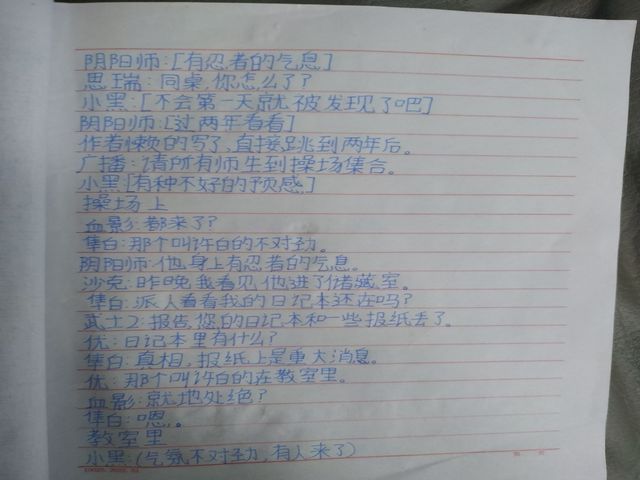 阴阳师:[有忍者的气息]
思瑞:同桌,你怎么了?
小黑:[不会第一天就被发现了吧]
阴阳师:[过两年看看]
作者懒的写了,直接跳到两年后。
广播:请所有师生到操场集合。
小黑[有种不好的预感]
操场上
血影:都来了?
隼白:那个叫许白的不对劲。
阴阳师:他身上有忍者的气息。
沙兔:昨晚我看见他进了储藏室。
隼白:派人看看我的日记本还在吗?
武士2:报告,您的日记本和一些报纸丢了。
优:日记本里有什么?
隼白:真相,报纸上是重大消息。
优:那个叫许白的在教室里。
血影:就地处绝?
隼白:嗯。
教室里
小黑:(气氛不对劲,有人来了)